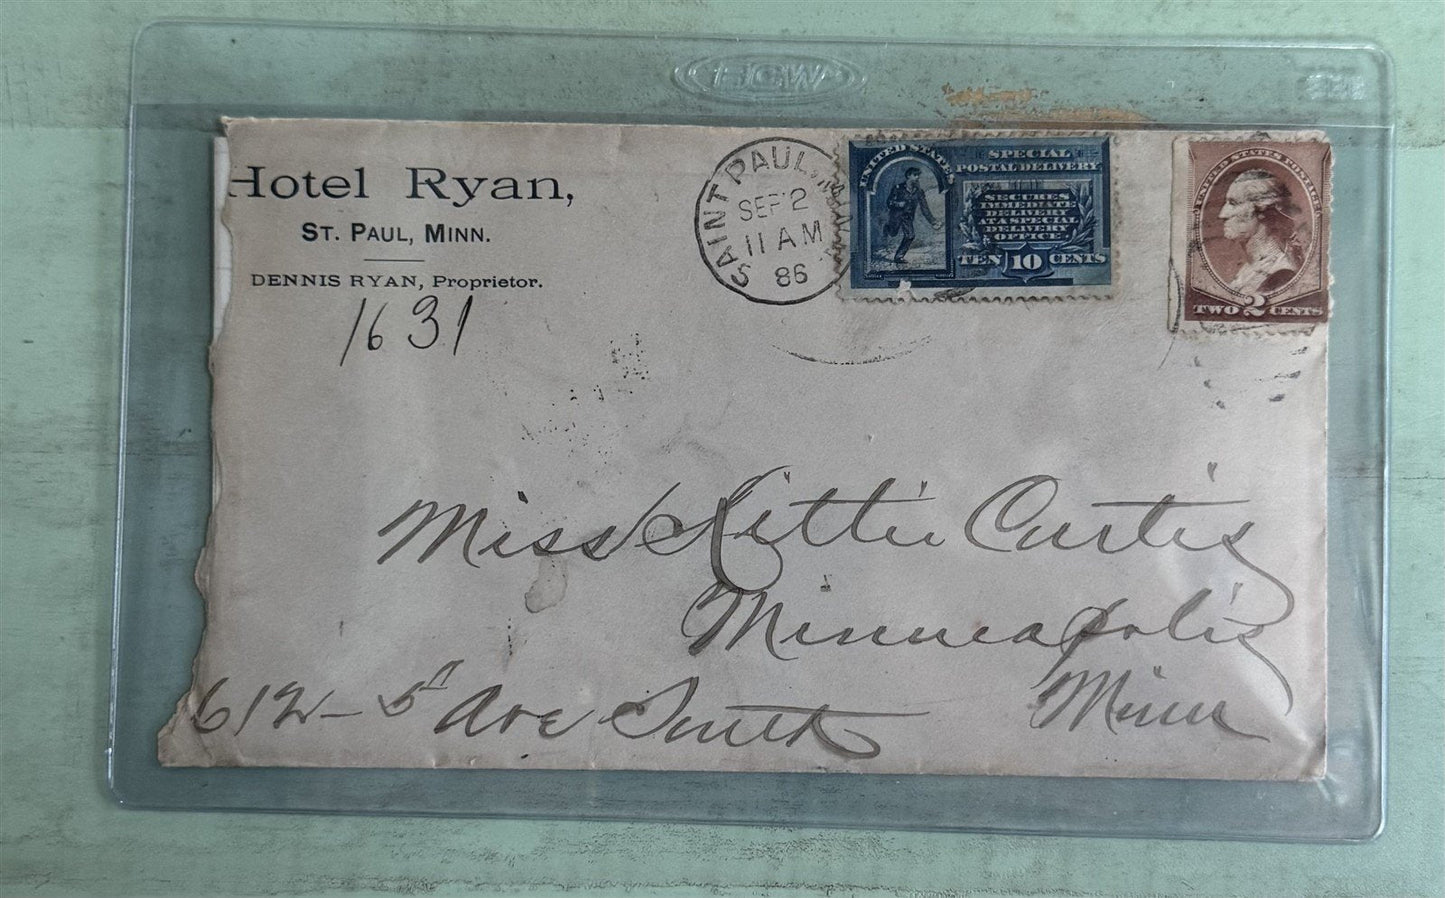 Hotel Ryan,
ST. PAUL, MINN.
DENNIS RYAN, Proprietor.
1631
SAINT PAUL, MINN.
SEP 2
11 AM
86
UNITED STATES
SPECIAL
POSTAL DELIVERY
SECURES
IMMEDIATE
DELIVERY
AT A SPECIAL
DELIVERY
OFFICE.
TEN 10 CENTS
UNITED STATES POSTAGE
TWO 2 CENTS
Miss Kittie Curtis
Minneapolis
Minn
612 - 5" Ave South